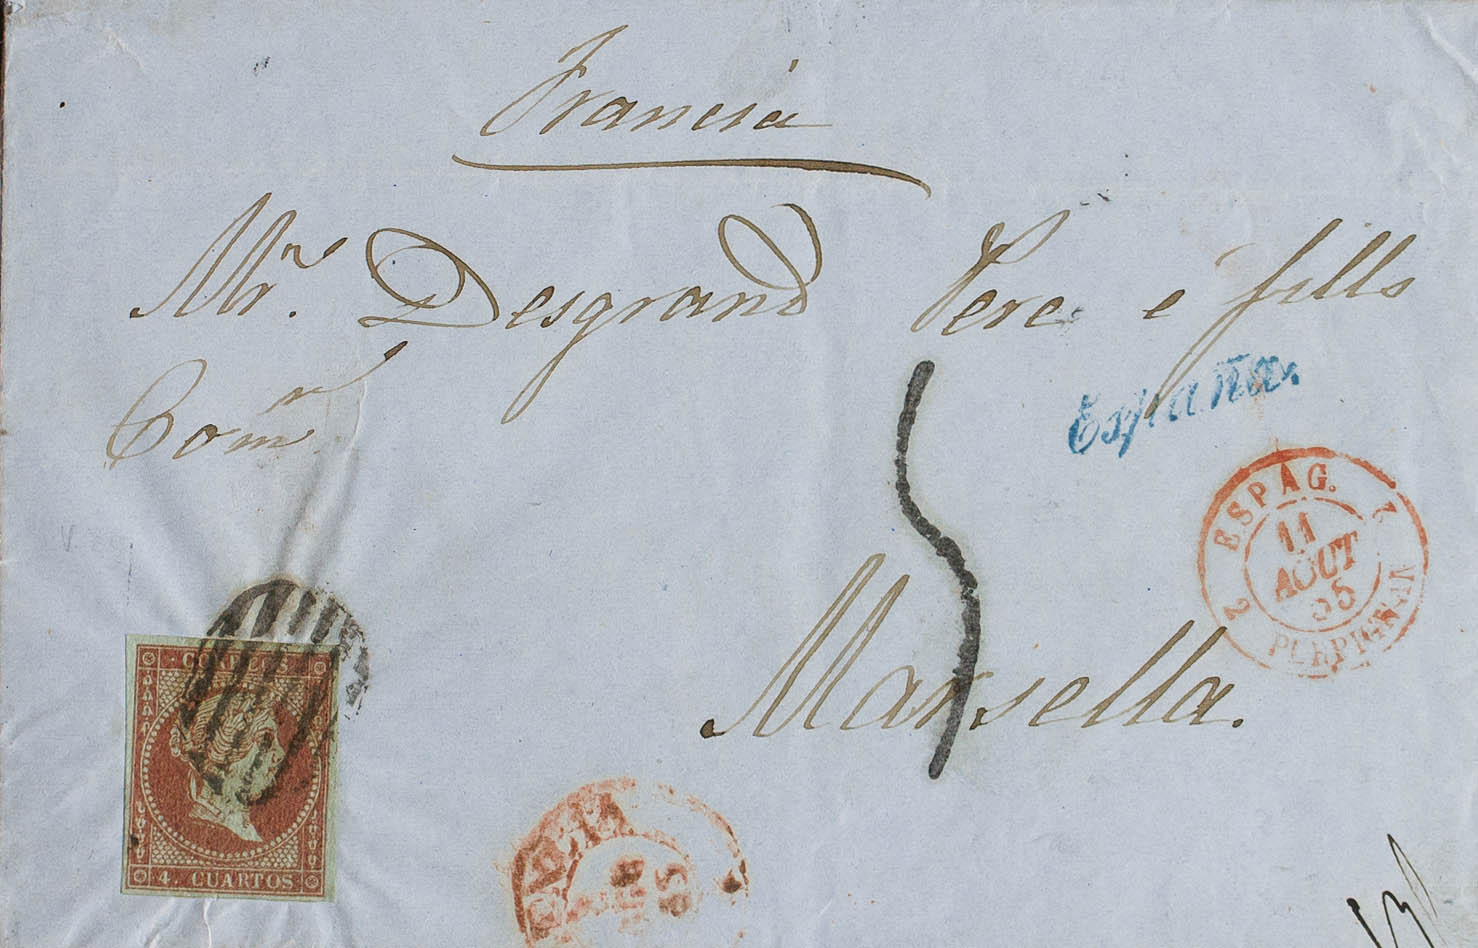 Francia
Mr. Desgrand Pere e fills
Comr
España.
2 ESPAG. 2
11
AOUT
55
PERPIGNAN
5
Marsella.
CORREOS
4. CUARTOS